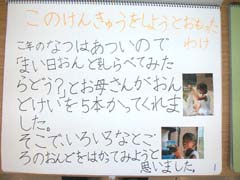 このけんきゅうをしようとおもった
わけ
こ年のなつはあついので
「まい日おんど乱しらべてみた
らどう?」とお母さんがおん
どけいを5本かってくれま
した。
そこで、いろいろなとこ
ろのおんどをはかってみようと
思いました。
1